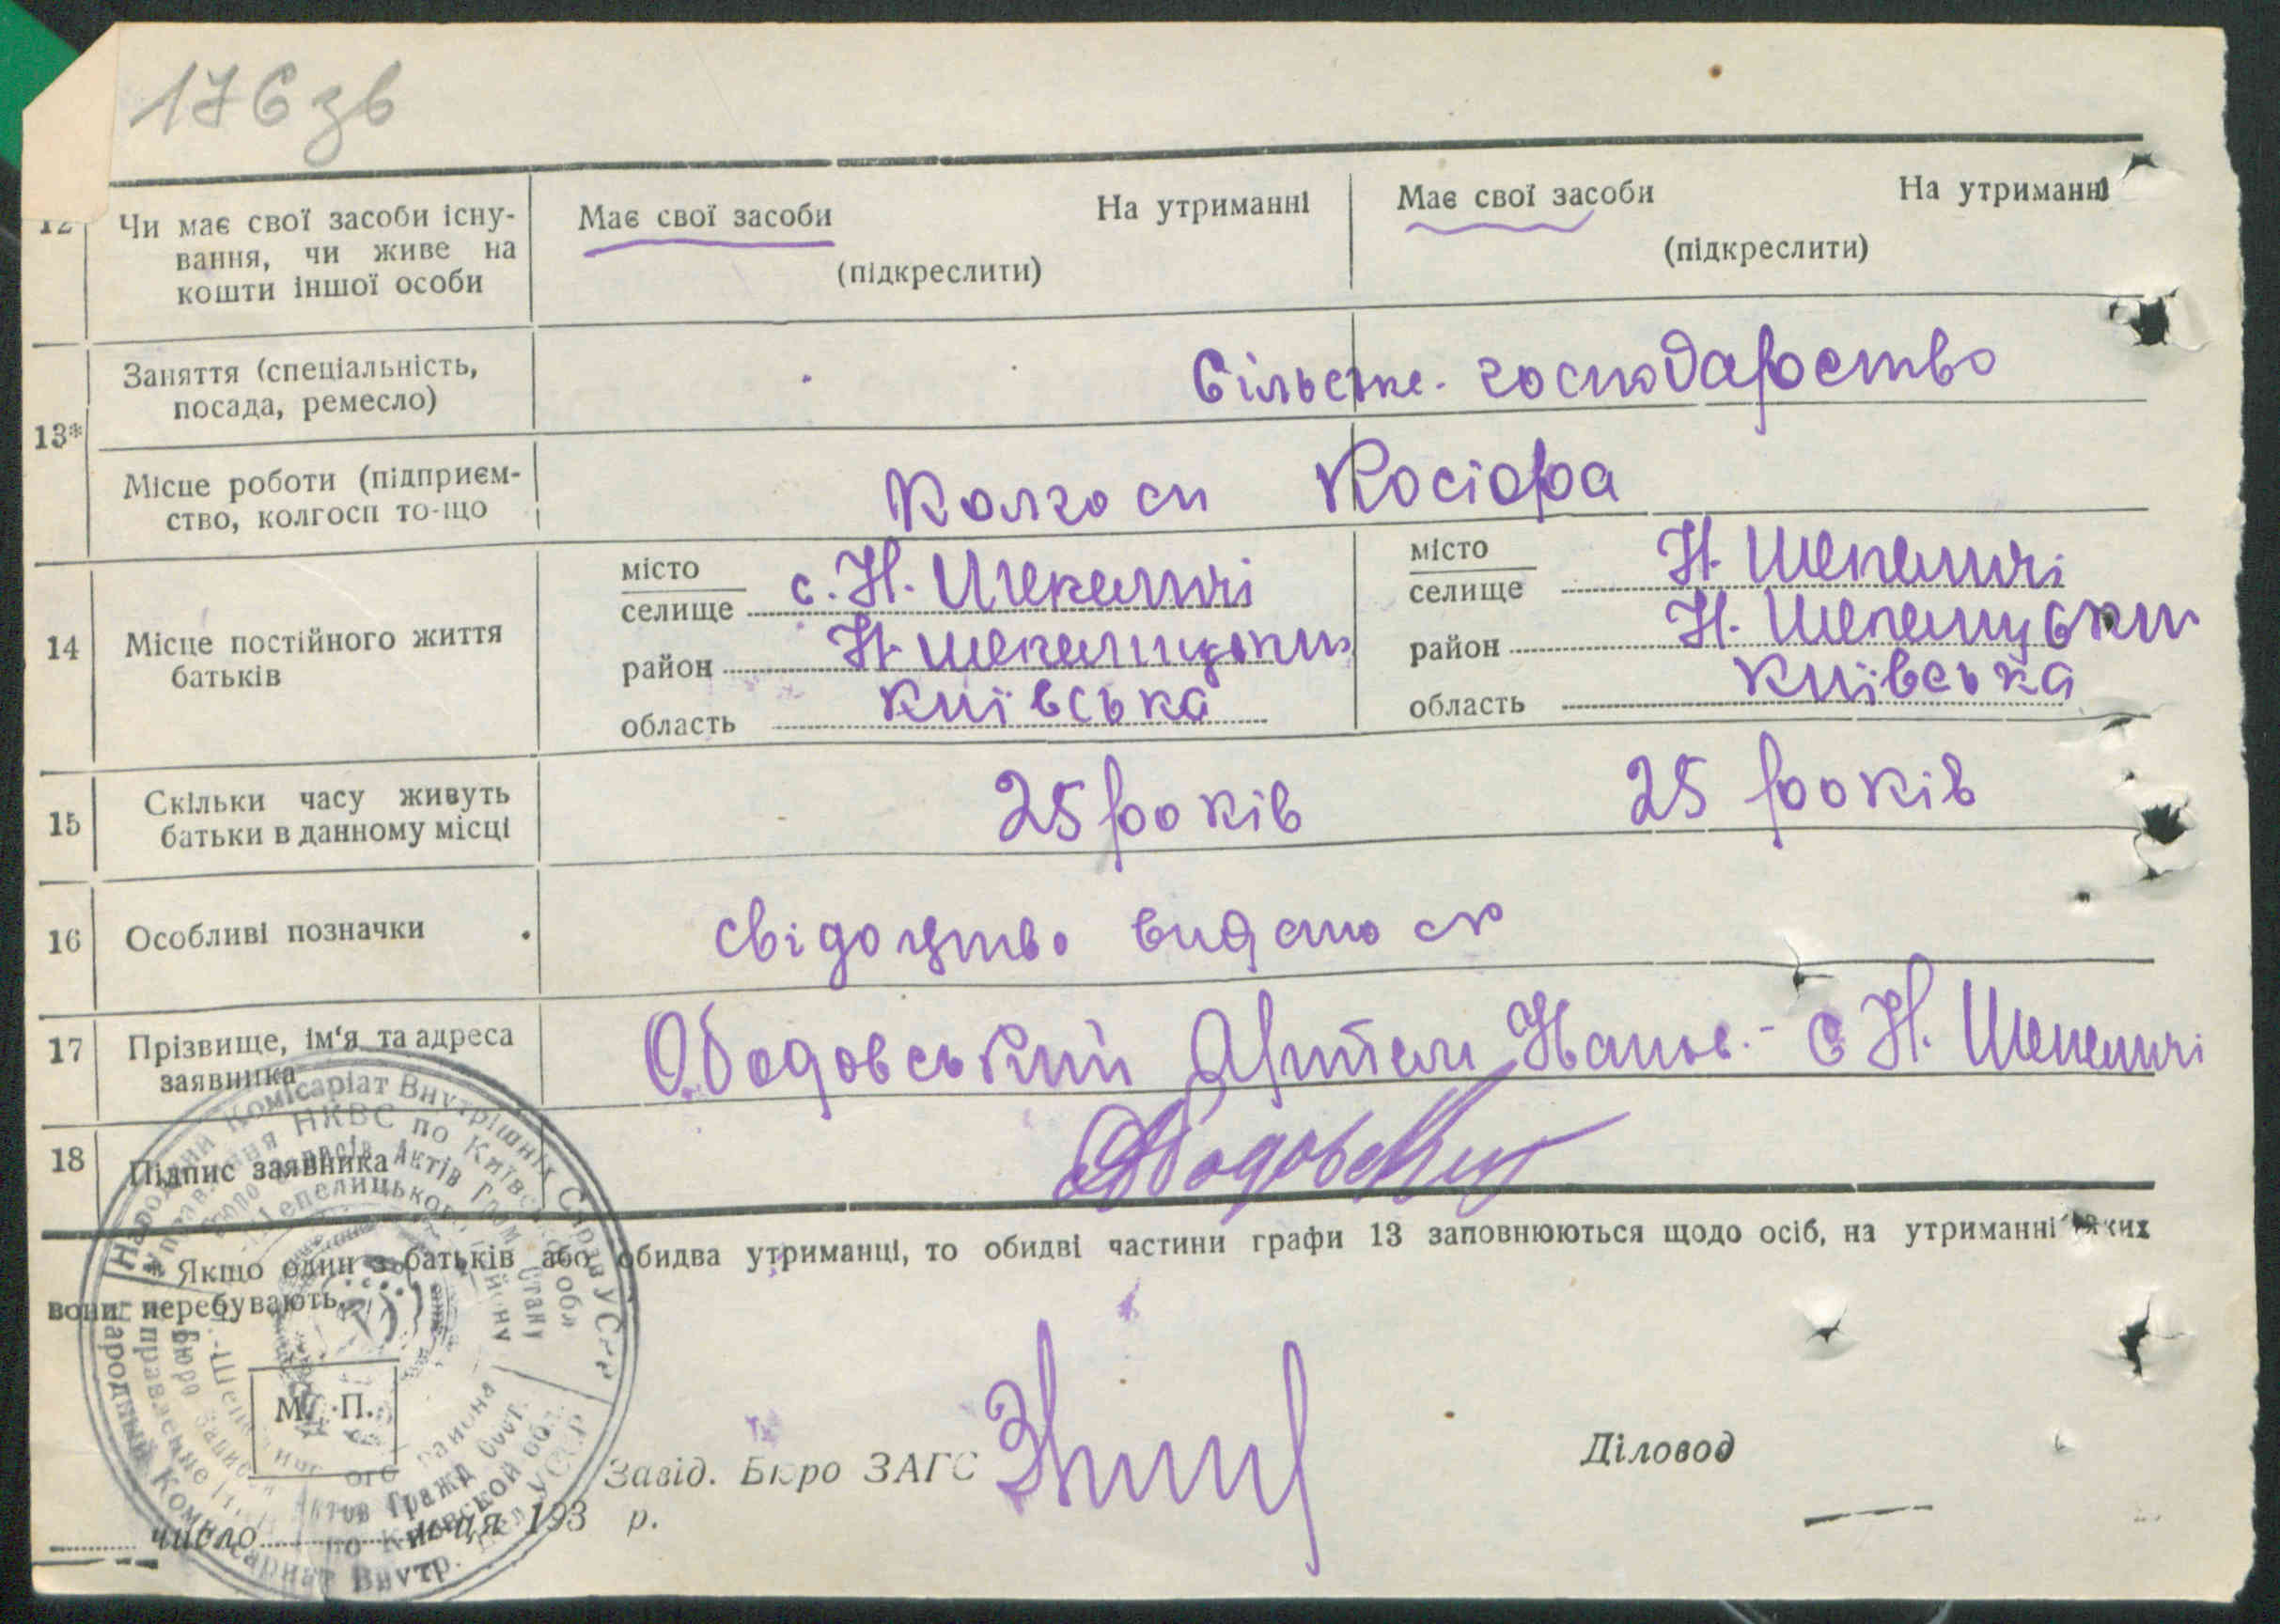 176 зв
12 Чи має свої засоби існу- Має свої засоби На утриманні Має свої засоби На утриманні
вання, чи живе на (підкреслити) (підкреслити)
кошти іншої особи
13* Заняття (спеціальність, Сільське господарство
посада, ремесло)
Місце роботи (підприєм- Колгосп Косіора
ство, колгосп то-що
14 Місце постійного життя батьків
місто
селище с. Н. Шепеличі
район Н. Шепелицький
область Київська
місто
селище Н. Шепеличі
район Н. Шепелицький
область Київська
15 Скільки часу живуть 25 років 25 років
батьки в данному місці
16 Особливі позначки свідоцтво
17 Прізвище, ім'я та адреса Ободовський Іванов. - с Н. Шепеличі
заявника
18 Підпис заявника
* Якщо один з батьків або обидва утриманці, то обидві частини графи 13 заповнюються щодо осіб, на утриманні яких
вони перебувають.
Народний Комісаріат Внутрішніх Справ УСРР
Управління НКВС по Київській обл
Бюро Записів Актів Гром. Стану
М. П.
Завід. Бюро ЗАГС Діловод
число м-ця 193 р.